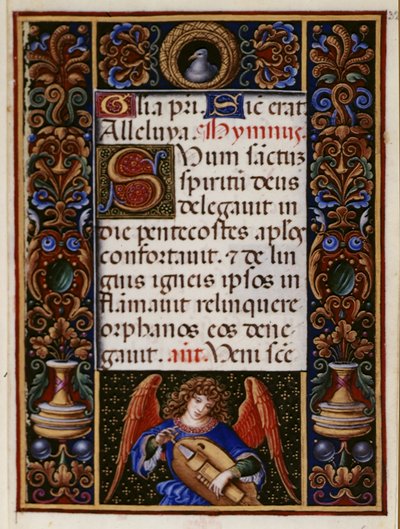 Glia pri Sic̄ erat
Alleluya. Hymnus.
SVum sāctuz
spiritū deus
delegauit in
die pentecostes aplos
confortauit. & de lin
guis igneis ipsos in
flamauit relinquere
orphanos eos dene
gauit. añt. Veni scē